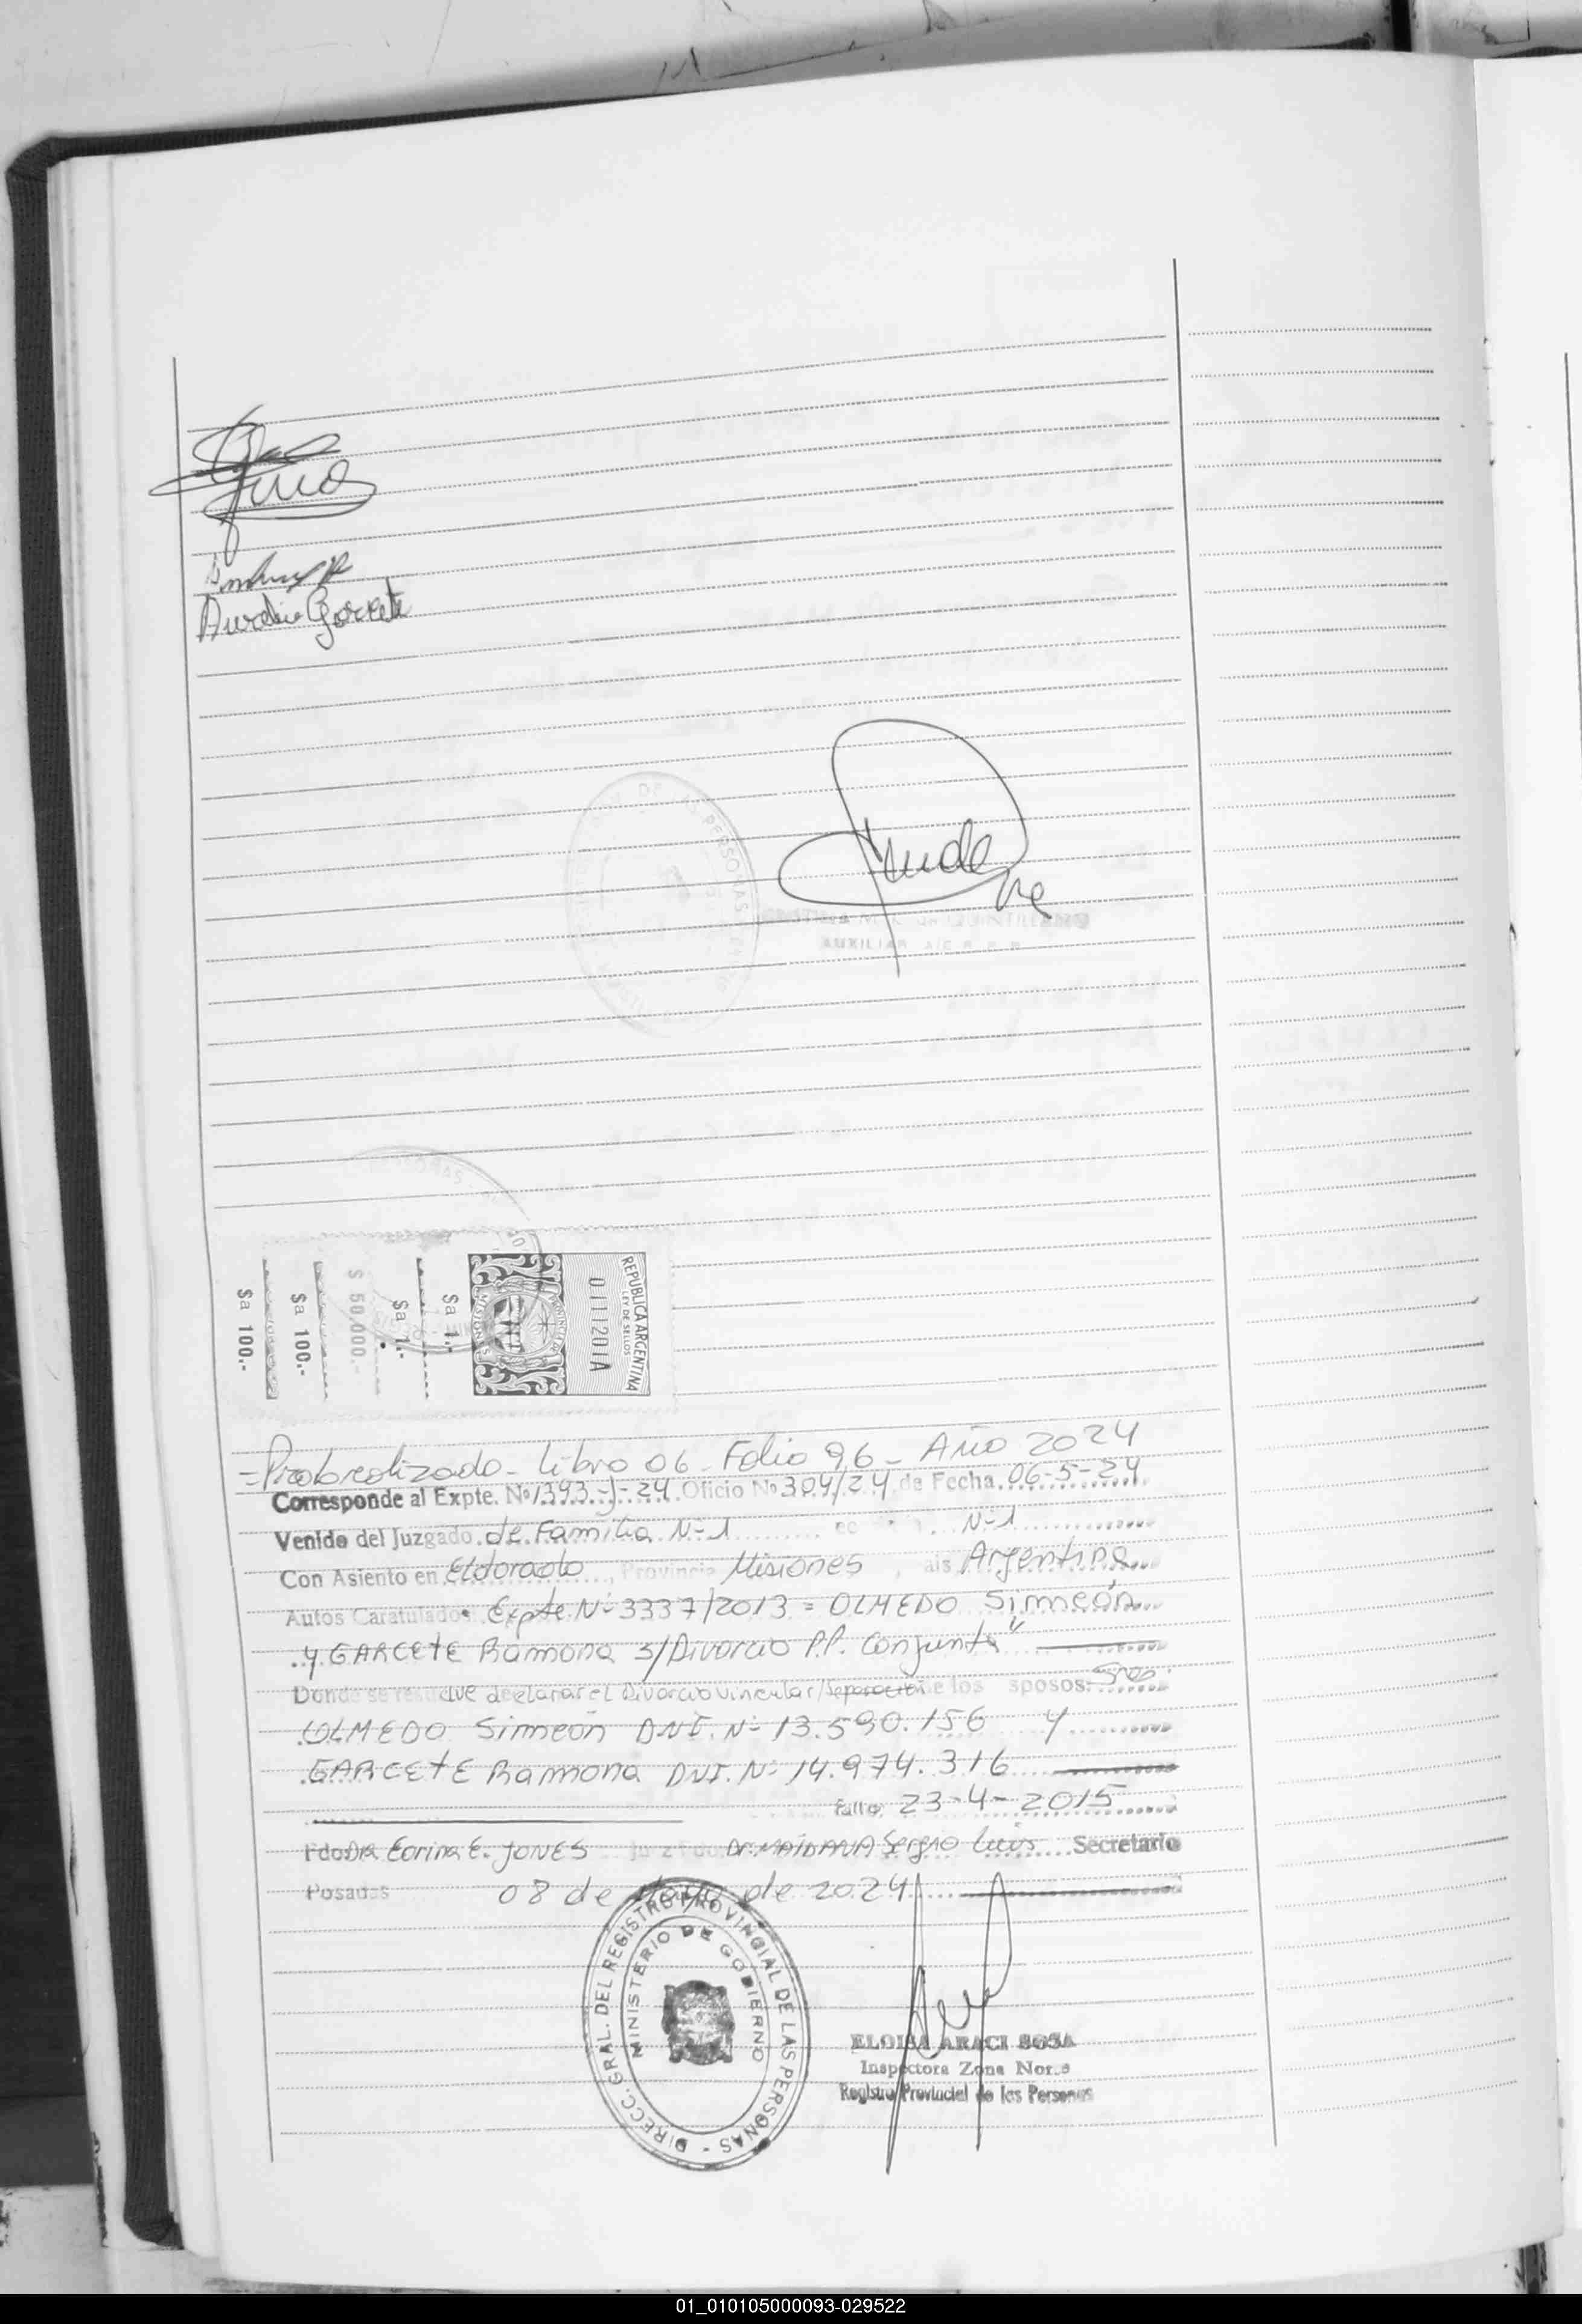 Aurelia Garcete
AUXILIAR
REPUBLICA ARGENTINA
LEY DE SELLOS
011201A
PROVINCIA DE MISIONES
$a 1.-
$a 1.-
$ 50.000.-
$a 100.-
$a 100.-
=Protocolizado - Libro 06 - Folio 96 - Año 2024
Corresponde al Expte. Nº 1393-J-24 Oficio Nº 304/24 de Fecha 06-5-24
Venido del Juzgado de Familia Nº 1 Nº 1
Con Asiento en Eldorado, Provincia Misiones, ais Argentina
Autos Caratulados Expte Nº 3337/2013 = OLMEDO Simeón
y GARCETE Ramona s/Divorcio P.P. Conjunta"
Donde se resuelve declarar el Divorcio Vincular/Separación de los sposos: Sres.
OLMEDO Simeón DNI. Nº 13.590.156 y
GARCETE Ramona DNI. Nº 14.974.316
fallo: 23-4-2015
Fdo: DRA Corina E. JONES Juez Fdo Dr. MAIDANA Sergio Luis Secretario
Posadas 08 de Mayo de 2024
DIRECC. GRAL. DEL REGISTRO PROVINCIAL DE LAS PERSONAS -
MINISTERIO DE GOBIERNO
ELOISA ARACI SOSA
Inspectora Zona Norte
Registro Provincial de las Personas
01_010105000093-029522